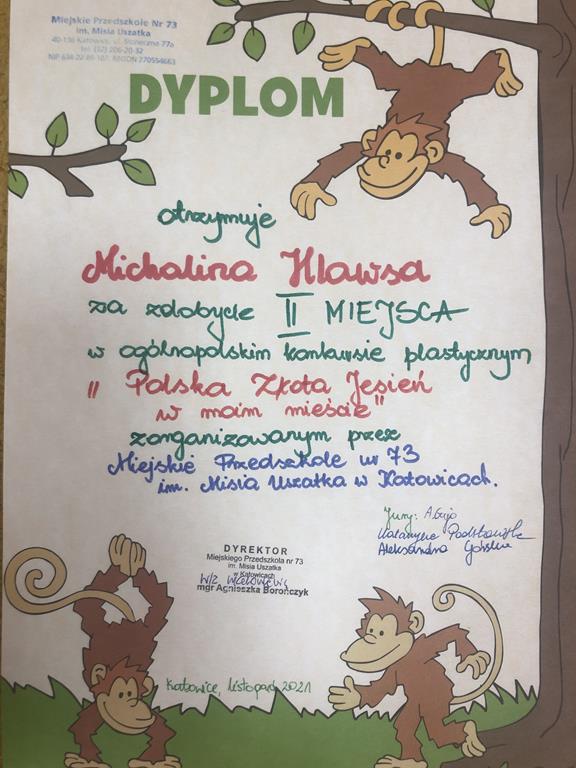 Miejskie Przedszkole Nr 73
im. Misia Uszatka
40-136 Katowice, ul. Słoneczna 77a
tel. (32) 206-20-32
DYPLOM
otrzymuje
Michalina Hlawsa
za zdobycie II MIEJSCA
w ogólnopolskim konkursie plastycznym
"Polska Złota Jesień
w moim mieście"
zorganizowanym przez
Miejskie Przedszkole nr 73
im. Misia Uszatka w Katowicach.
Jury:
Katarzyna
Aleksandra
DYREKTOR
Miejskiego Przedszkola nr 73
im. Misia Uszatka
w Katowicach
mgr Agnieszka Borończyk
Katowice, listopad 2021